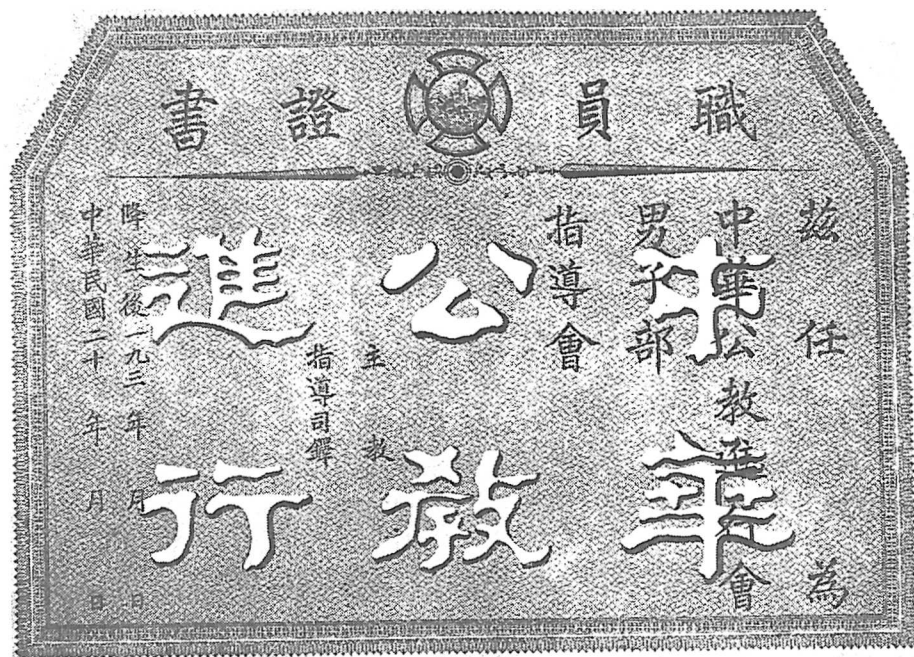 職員證書
茲任 為
中華公教進行會
男子部
指導會
主教
指導司鐸
降生後一九三 年 月 日
中華民國二十 年 月 日
中華
公教
進行